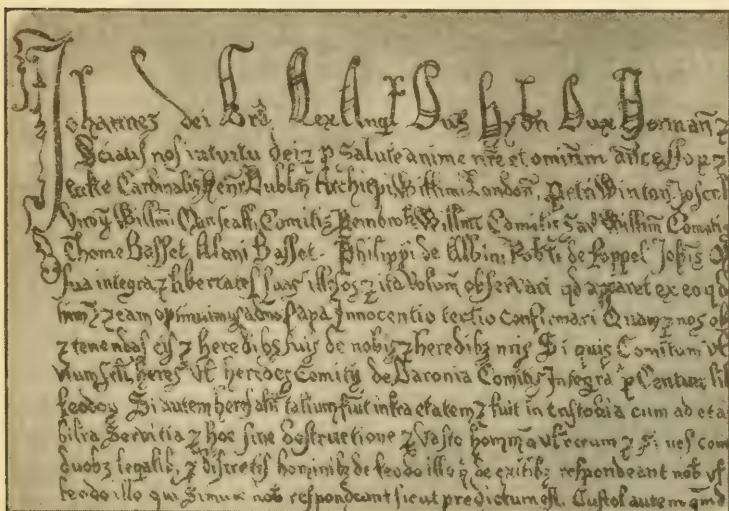 Johannes dei Grã Rex Angł Dns Hybn Dux Normañ ⁊
Sciatis nos intuitu dei ⁊ p Salute anime nre et omnium
Cardinalis Henr Dublin Archiepi, Willimi London, Petri Winton, Joscel
Willmi Marscalli, Comitis Pembrok Willmi Comitis Sar Willim Comitis
Thome Basset Alani Basset. Philippi de Albini Robti de Roppel Johis
sua integra ⁊ libertates suas illesas ⁊ ita volum observari qd apparet ex eo qd
⁊ eam optinuimus a dno Papa Innocentio tertio confirmari Quam ⁊ nos ob
⁊ tenendas eis ⁊ heredibz suis de nobis ⁊ heredibz nris Si quis Comitum vł
heres vł heredes Comitis de Baronia Comitis Integra p Centum lib
feodoꝝ Si autem heres talium fuit infra etatem ⁊ fuit in custodia cum ad eta
bilia Servitia ⁊ hoc sine destructione ⁊ vasto hominu vł rerum ⁊ si nos com
duobz legalib, ⁊ discretis hominibz de feodo illo q de exitibz respondeant nob vł
feodo illo qui nob respondeant sicut predictum est. Custos autem qmd